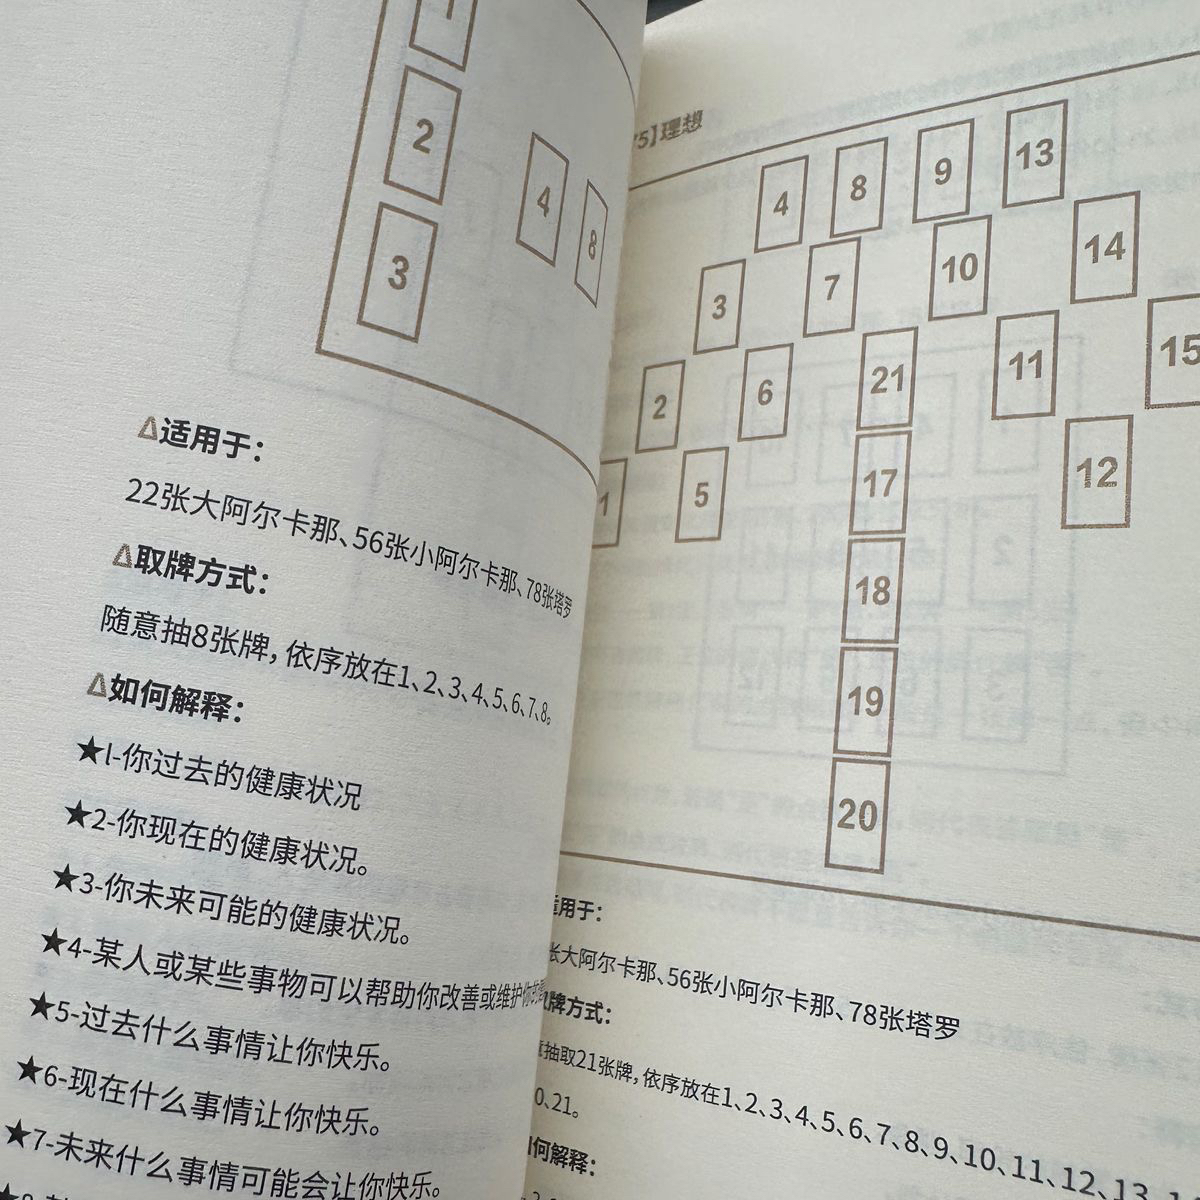 1
2
3
4
8
△适用于:
22张大阿尔卡那、56张小阿尔卡那、78张塔罗
△取牌方式:
随意抽8张牌,依序放在1、2、3、4、5、6、7、8。
△如何解释:
★l-你过去的健康状况
★2-你现在的健康状况。
★3-你未来可能的健康状况。
★4-某人或某些事物可以帮助你改善或维护你的
★5-过去什么事情让你快乐。
★6-现在什么事情让你快乐。
★7-未来什么事情可能会让你快乐。
5】理想
4 8 9 13
3 7 10 14
2 6 21 11 15
1 5 17 12
18
19
20
适用于:
张大阿尔卡那、56张小阿尔卡那、78张塔罗
牌方式:
抽取21张牌,依序放在1、2、3、4、5、6、7、8、9、10、11、12、13、
0、21。
如何解释: